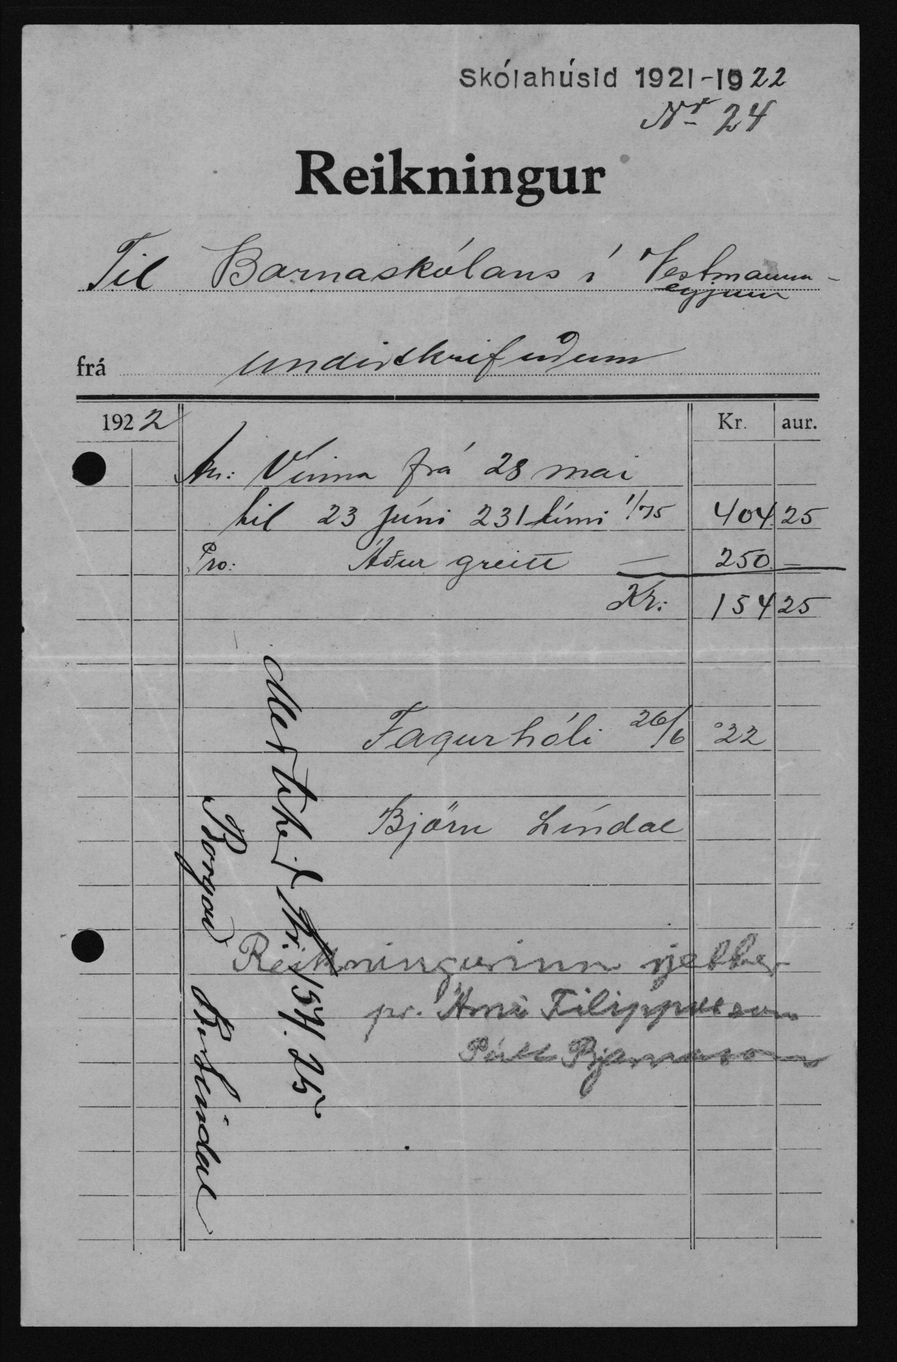 Skólahúsið 1921-1922
Nr 24
Reikningur
Til Barnaskólans í Vestmanna-
eyjum
frá undirskrifuðum
1922
Kr. aur.
An: Vinna frá 28 mai
til 23 júní 231 tími 1/75 404 25
Pro: Áður greitt — 250 —
Kr: 154 25
Fagurhóli 26/6 '22
Björn Líndal
Reikningurinn rjettur
pr. Árni Filippusson
Páll Bjarnason
Meðtekið Kr. 154.25
Borgað B. Líndal